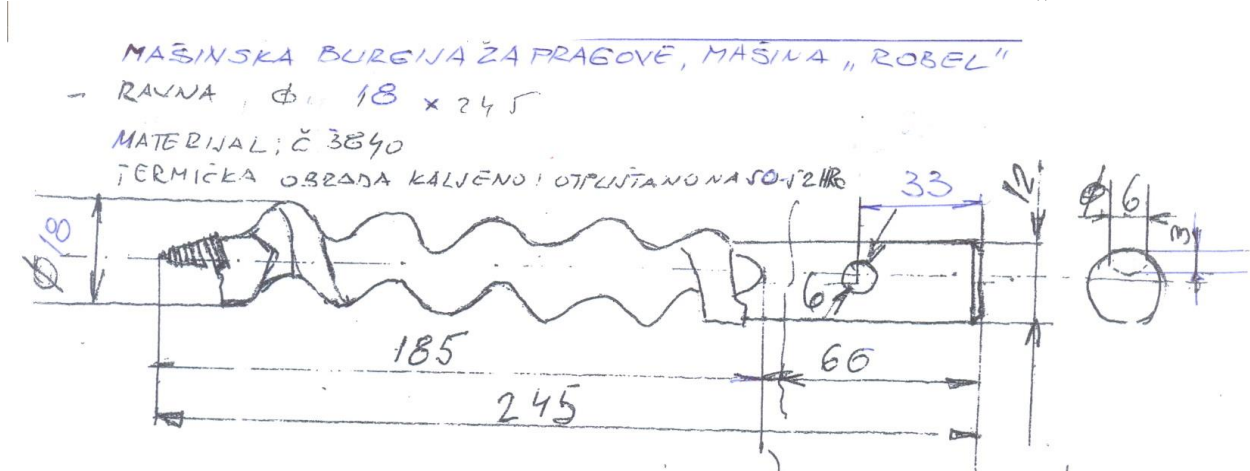 MAŠINSKA BURGIJA ZA PRAGOVE, MAŠINA „ROBEL"
- RAVNA, ϕ 18 x 245
MATERIJAL: Č 3840
TERMIČKA OBRADA KALJENO I OTPUŠTANO NA 50-52 HRc
33
12
ϕ 6
3
ϕ18
6
185
60
245